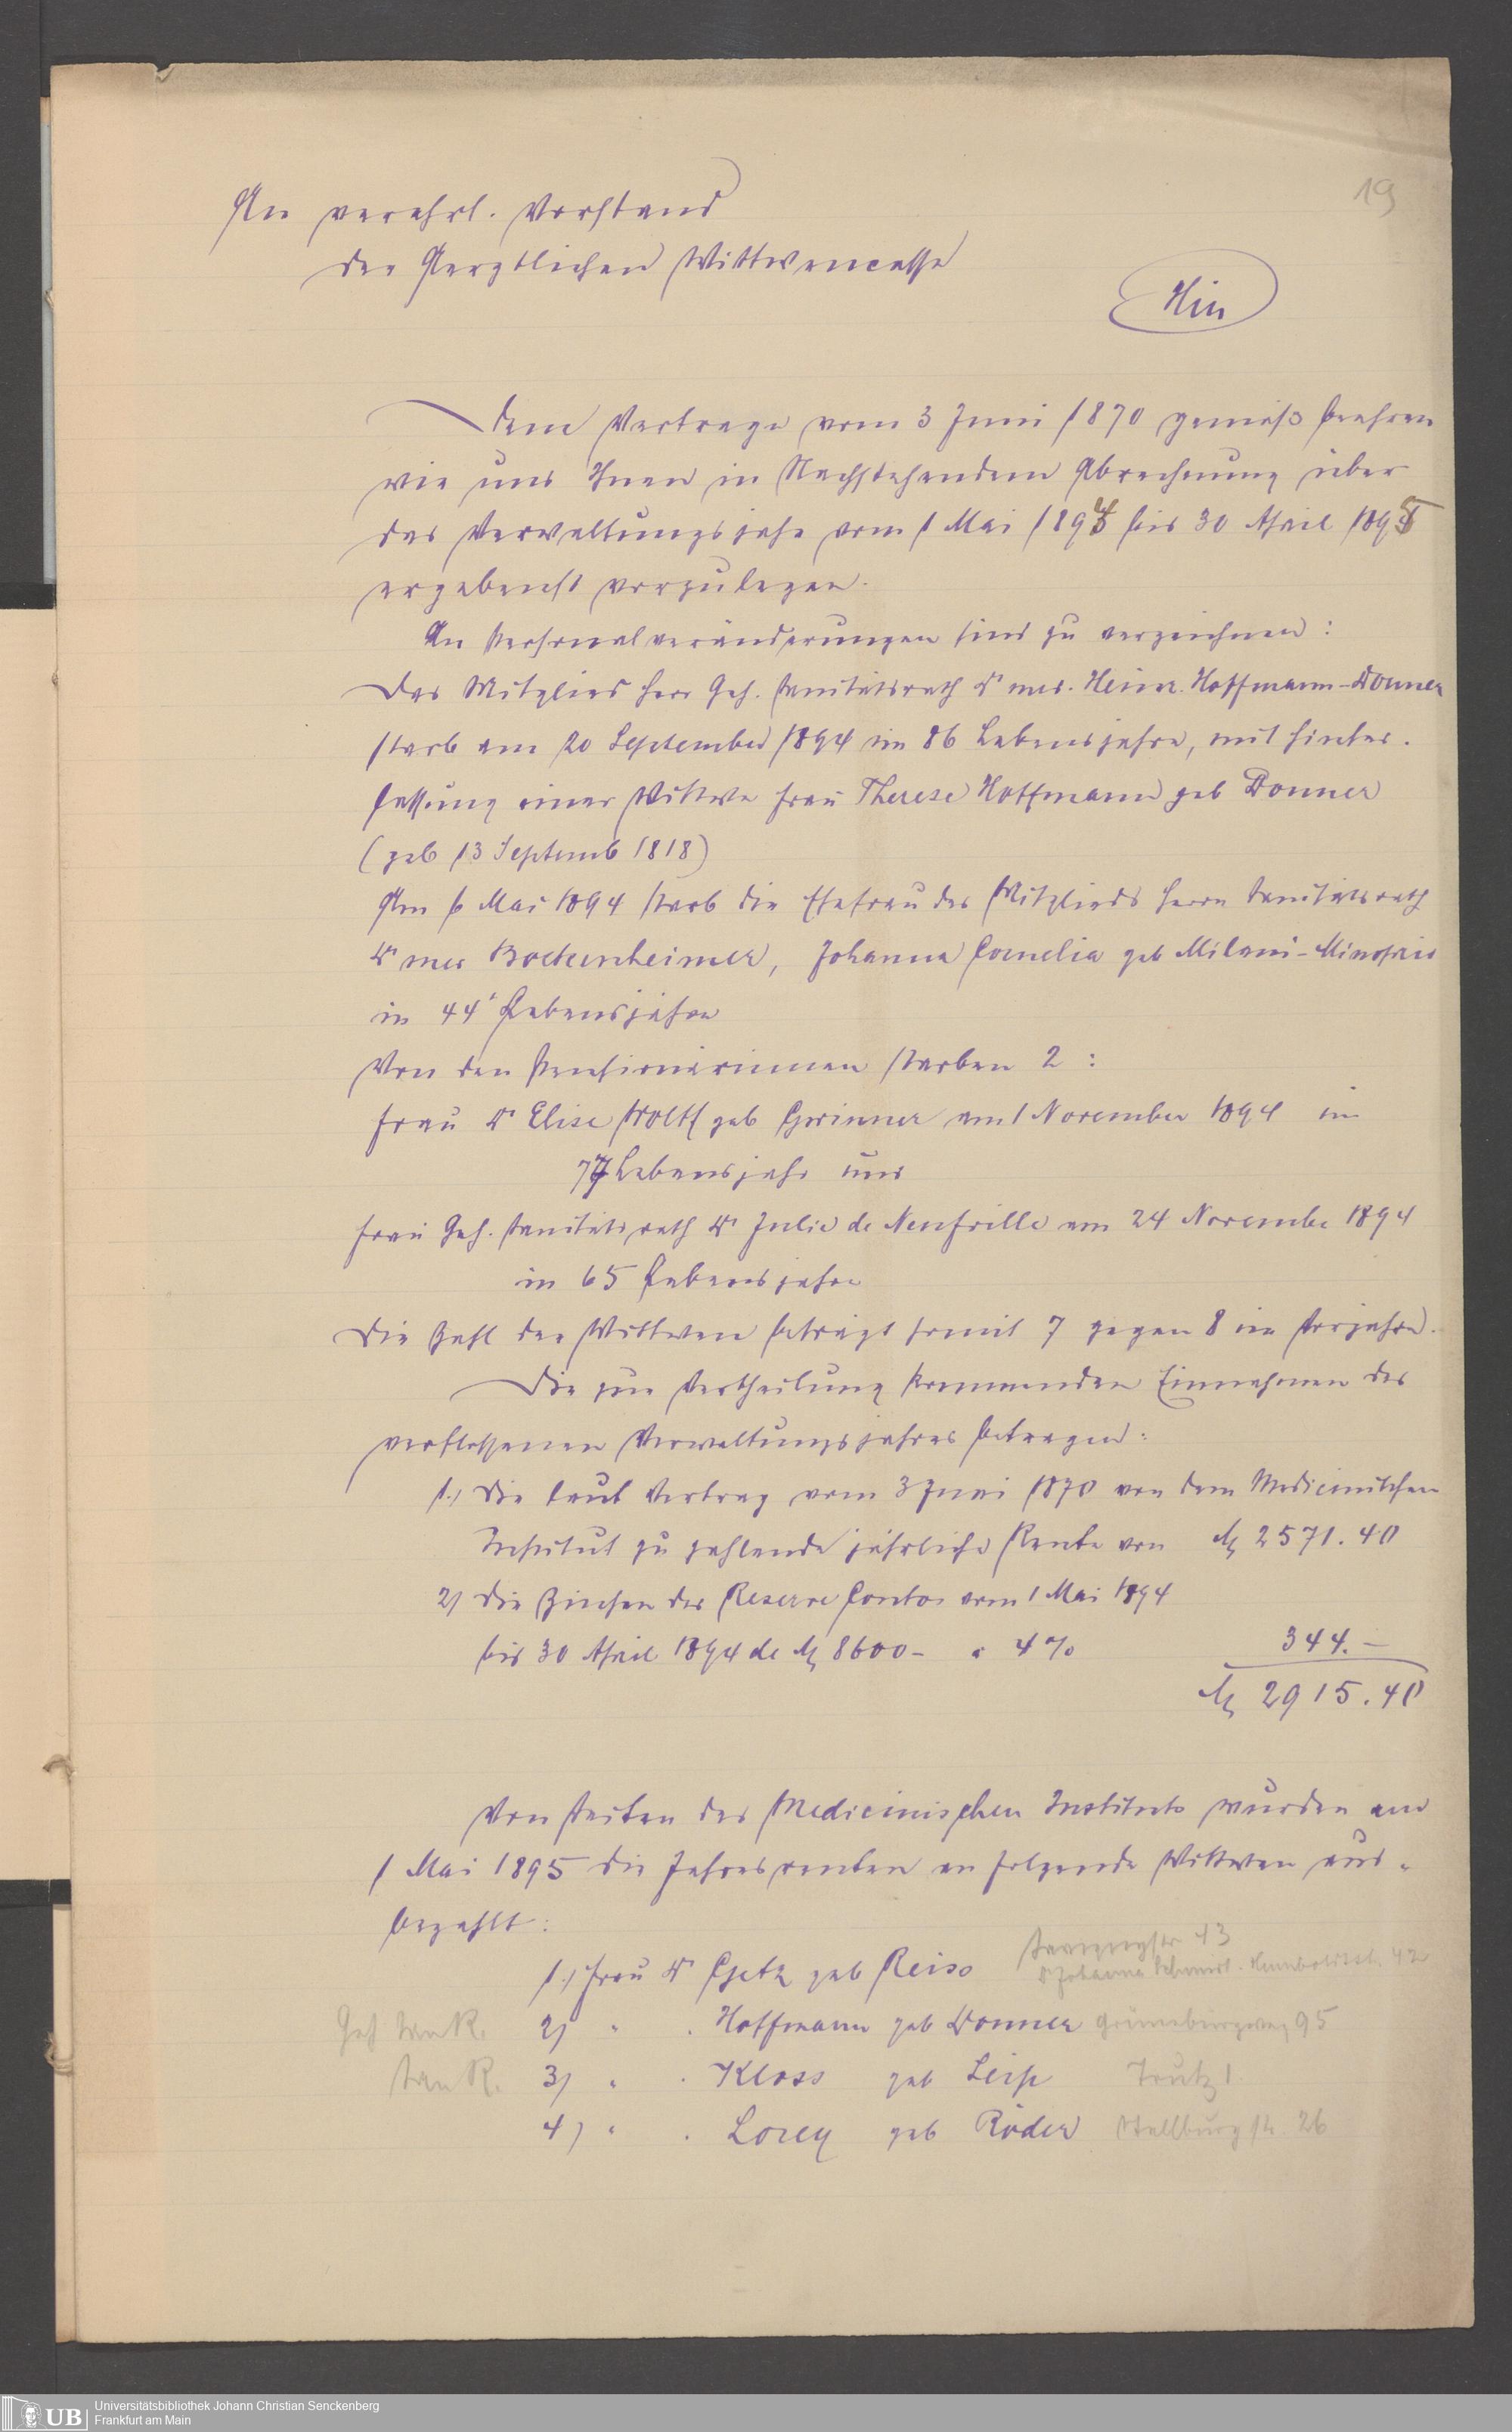 19
An verehrl. Vorstand
der Aerztlichen Wittwencasse
Hier
Dem Vertrage vom 3 Juni 1870 gemäß beehren
wir uns Ihnen in Nachstehendem Abrechnung über
das Verwaltungsjahr vom 1 Mai 1894 bis 30 April 1895
ergebenst vorzulegen.
An Personalveränderungen sind zu verzeichnen:
Das Mitglied Herr Geh. Sanitätsrath Dr med. Heinr. Hoffmann-Donner
starb am 20 September 1894 im 86 Lebensjahre, mit Hinter-
lassung einer Wittwe Frau Therese Hoffmann geb Donner
(geb 13 Septemb 1818)
Am 6 Mai 1894 starb die Ehefrau des Mitglieds Herrn Sanitätsrath
Dr med Bockenheimer, Johanna Cornelia geb Milani-Minoprio
in 44' Lebensjahre
Von den Pensionärinnen starben 2:
Frau Dr Elise Wolff geb Gwinner am 1 November 1894 im
77 Lebensjahr und
Frau Geh. Sanitätsrath Dr Julie de Neufville am 24 Novembe 1894
in 65 Lebensjahre
Die Zahl der Wittwen beträgt somit 7 gegen 8 im Vorjahre.
Die zur Vertheilung kommenden Einnahmen des
verflossenen Verwaltungsjahres betragen:
1.) Die laut Vertrag vom 3 Juni 1870 von dem Medicinischen
Institut zu zahlende jährliche Rente von M 2571.40
2) Die Zinsen des Reserve Contos vom 1 Mai 1894
bis 30 April 1894 de M 8600 - a 4% 344.—
M 2915.40
Von Seiten des Medicinischen Instituts wurden am
1 Mai 1895 die Jahresrenten an folgende Wittwen aus-
bezahlt:
1.) Frau Dr Getz geb Reiss 13
Johanna Schmidt. Humboldtstr. 42
Geh San R. 2) " . Hoffmann geb Donner Grüneburgweg 95
San R. 3) " . Kloss geb Leisp Trutz 1
4) " . Lorey geb Röder Stallburgstr. 26
Universitätsbibliothek Johann Christian Senckenberg
UB Frankfurt am Main